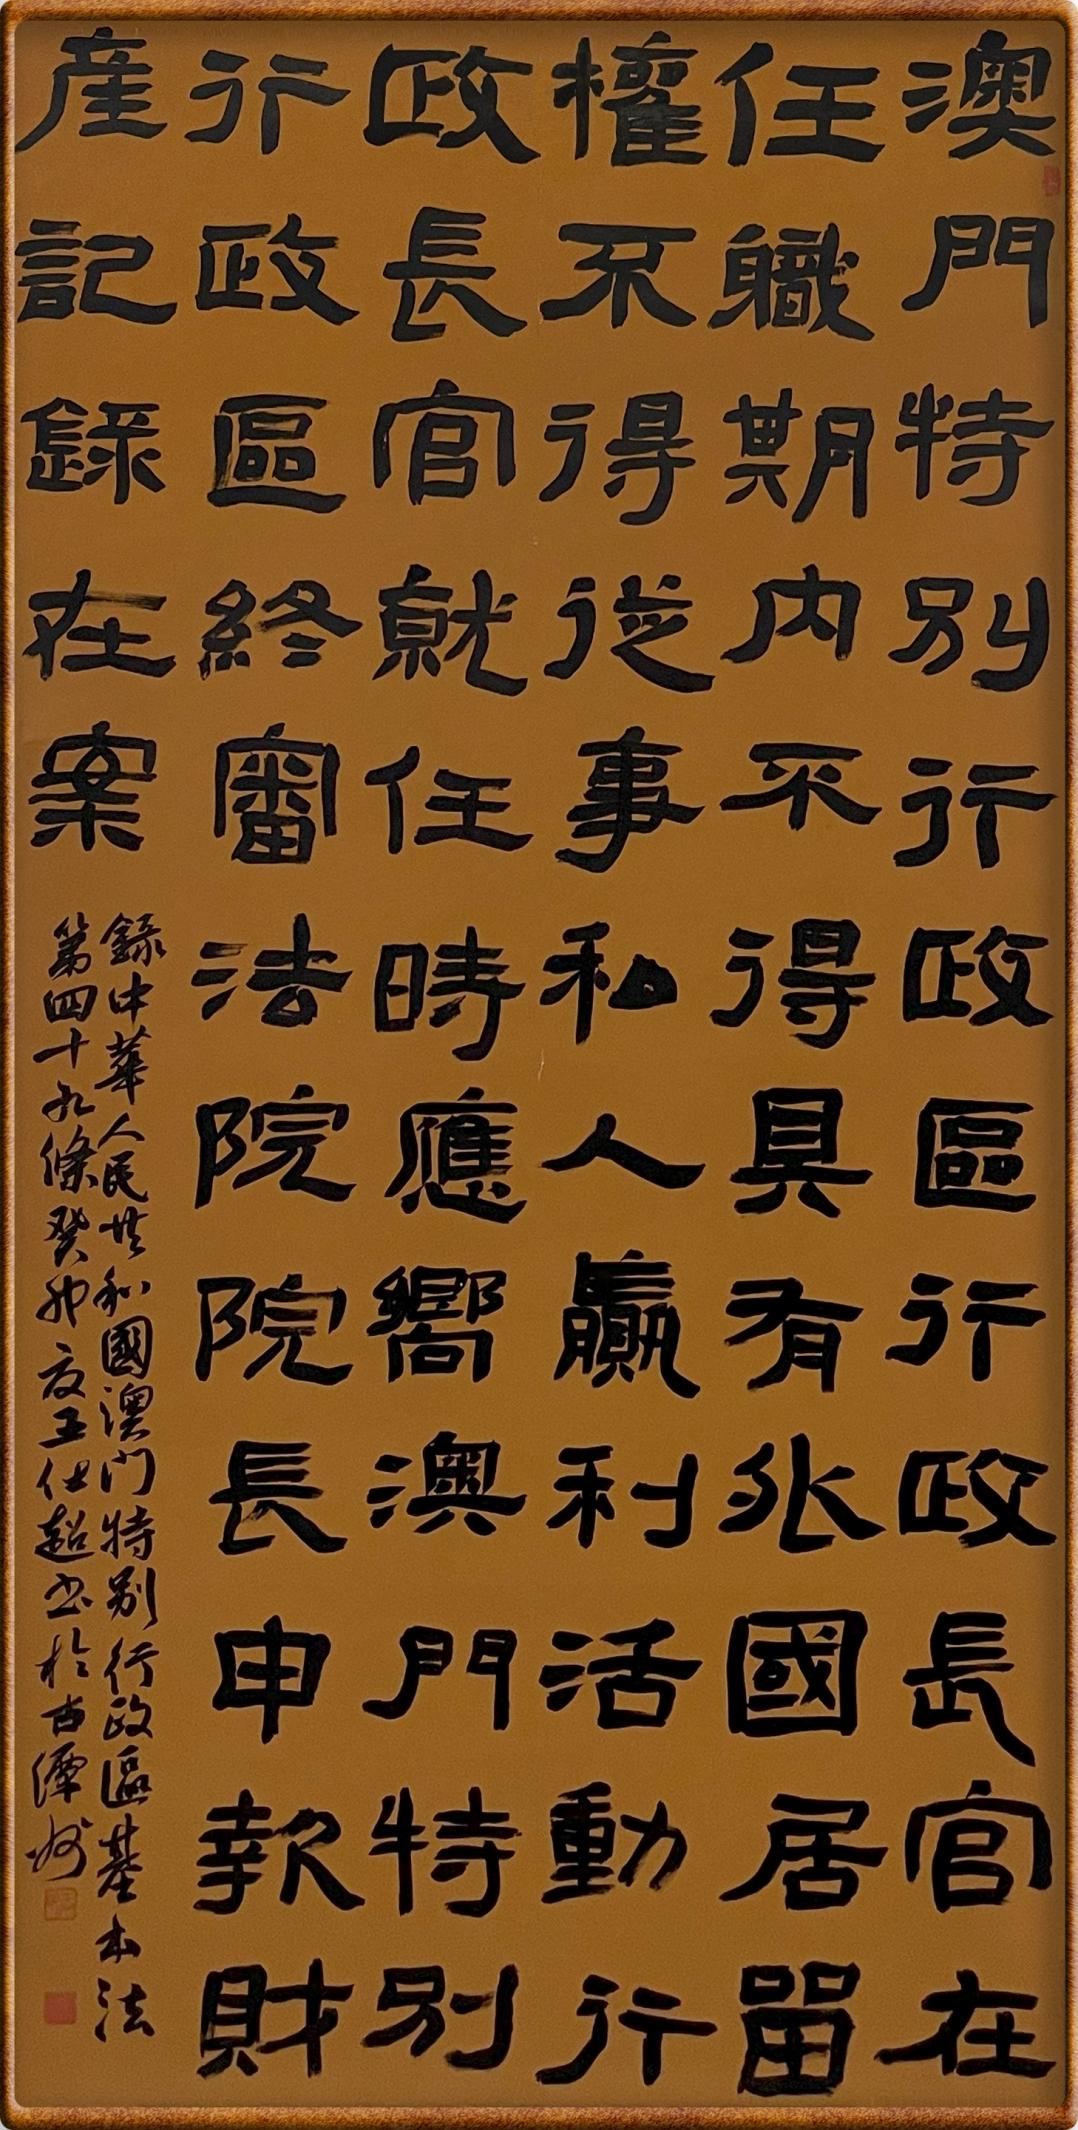 澳門特別行政區行政長官在
任職期內不得具有外國居留
權不得從事私人贏利活動行
政長官就任時應嚮澳門特別
行政區終審法院院長申報財
產記錄在案
錄中華人民共和國澳門特别行政區基本法
第四十九條癸卯夏王仕超书於古潭州